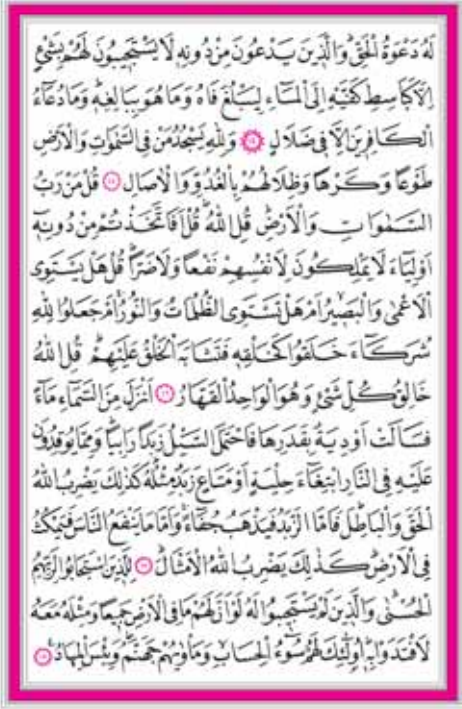 لَهُ دَعْوَةُ الْحَقِّ وَالَّذِينَ يَدْعُونَ مِنْ دُونِهِ لَا يَسْتَجِيبُونَ لَهُمْ بِشَيْءٍ
اِلَّا كَبَاسِطِ كَفَّيْهِ اِلَى الْمَاءِ لِيَبْلُغَ فَاهُ وَمَا هُوَ بِبَالِغِهِ وَمَا دُعَاءُ
الْكَافِرِينَ اِلَّا فِي ضَلَالٍ ﴿١٤﴾ وَلِلّٰهِ يَسْجُدُ مَنْ فِي السَّمٰوَاتِ وَالْاَرْضِ
طَوْعًا وَكَرْهًا وَظِلَالُهُمْ بِالْغُدُوِّ وَالْاٰصَالِ ﴿١٥﴾ قُلْ مَنْ رَبُّ
السَّمٰوَاتِ وَالْاَرْضِ قُلِ اللّٰهُ قُلْ اَفَاتَّخَذْتُمْ مِنْ دُونِهِ
اَوْلِيَاءَ لَا يَمْلِكُونَ لِاَنْفُسِهِمْ نَفْعًا وَلَا ضَرًّا قُلْ هَلْ يَسْتَوِي
الْاَعْمٰى وَالْبَصِيرُ اَمْ هَلْ تَسْتَوِي الظُّلُمَاتُ وَالنُّورُ اَمْ جَعَلُوا لِلّٰهِ
شُرَكَاءَ خَلَقُوا كَخَلْقِهِ فَتَشَابَهَ الْخَلْقُ عَلَيْهِمْ قُلِ اللّٰهُ
خَالِقُ كُلِّ شَيْءٍ وَهُوَ الْوَاحِدُ الْقَهَّارُ ﴿١٦﴾ اَنْزَلَ مِنَ السَّمَاءِ مَاءً
فَسَالَتْ اَوْدِيَةٌ بِقَدَرِهَا فَاحْتَمَلَ السَّيْلُ زَبَدًا رَابِيًا وَمِمَّا يُوقِدُونَ
عَلَيْهِ فِي النَّارِ ابْتِغَاءَ حِلْيَةٍ اَوْ مَتَاعٍ زَبَدٌ مِثْلُهُ كَذٰلِكَ يَضْرِبُ اللّٰهُ
الْحَقَّ وَالْبَاطِلَ فَاَمَّا الزَّبَدُ فَيَذْهَبُ جُفَاءً وَاَمَّا مَا يَنْفَعُ النَّاسَ فَيَمْكُثُ
فِي الْاَرْضِ كَذٰلِكَ يَضْرِبُ اللّٰهُ الْاَمْثَالَ ﴿١٧﴾ لِلَّذِينَ اسْتَجَابُوا لِرَبِّهِمُ
الْحُسْنٰى وَالَّذِينَ لَمْ يَسْتَجِيبُوا لَهُ لَوْ اَنَّ لَهُمْ مَا فِي الْاَرْضِ جَمِيعًا وَمِثْلَهُ مَعَهُ
لَافْتَدَوْا بِهِ اُولٰئِكَ لَهُمْ سُوءُ الْحِسَابِ وَمَأْوٰيهُمْ جَهَنَّمُ وَبِئْسَ الْمِهَادُ ﴿١٨﴾